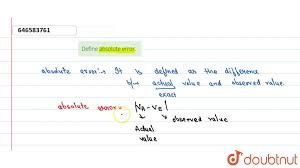 646583761
Define absolute error.
absolute error:- It is defined as the difference
b/w actual value and observed value.
exact
absolute error = |VA - VE|
observed value
Actual
value
doubtnut